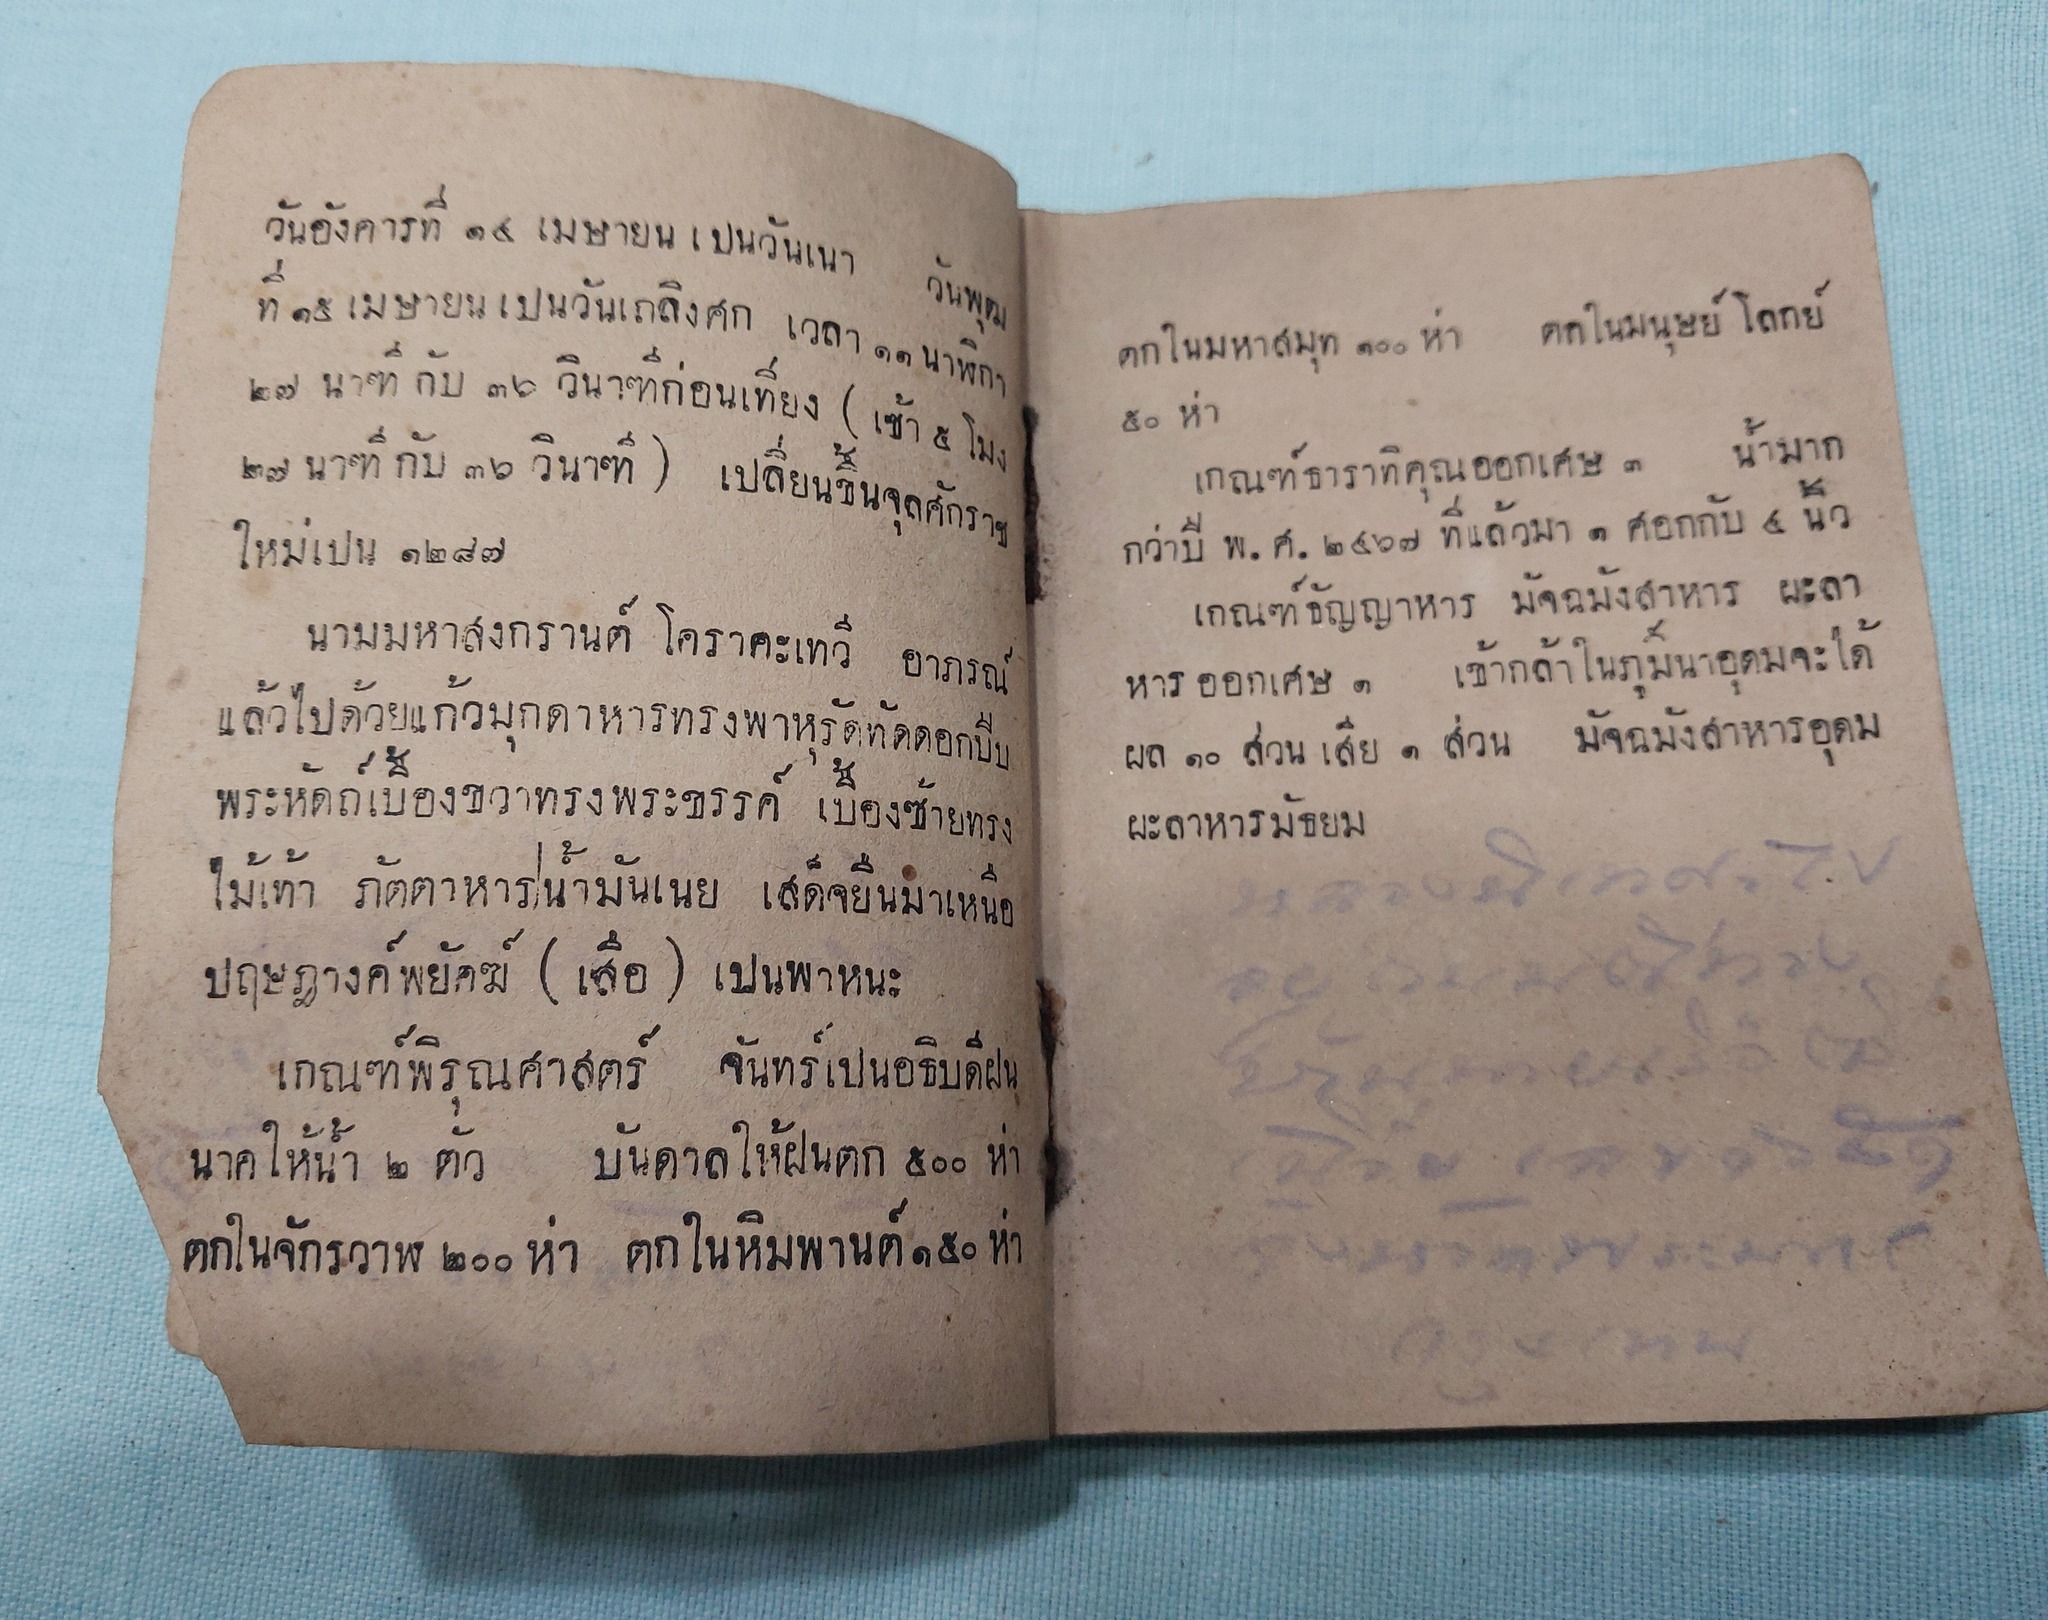 วันอังคารที่ ๑๔ เมษายน เปนวันเนา วันพุฒ
ที่ ๑๕ เมษายน เปนวันเถลิงศก เวลา ๑๑ นาฬิกา
๒๗ นาฑี กับ ๓๖ วินาฑีก่อนเที่ยง ( เช้า ๕ โมง
๒๗ นาฑี กับ ๓๖ วินาฑี ) เปลี่ยนขึ้นจุลศักราช
ใหม่เปน ๑๒๘๗
นามมหาสงกรานต์ โคราคะเทวี อาภรณ์
แล้วไปด้วยแก้วมุกดาหารทรงพาหุรัดทัดดอกปีบ
พระหัดถ์เบื้องขวาทรงพระขรรค์ เบื้องซ้ายทรง
ไม้เท้า ภัตตาหารน้ำมันเนย เสด็จยืนมาเหนือ
ปฤษฎางค์พยัคฆ์ ( เสือ ) เปนพาหนะ
เกณฑ์พิรุณศาสตร์ จันทร์เปนอธิบดีฝน
นาคให้น้ำ ๒ ตัว บันดาลให้ฝนตก ๕๐๐ ห่า
ตกในจักรวาฬ ๒๐๐ ห่า ตกในหิมพานต์ ๑๕๐ ห่า
ตกในมหาสมุท ๑๐๐ ห่า ตกในมนุษย์โลกย์
๕๐ ห่า
เกณฑ์ธาราทิคุณออกเศษ ๓ น้ำมาก
กว่าปี พ.ศ. ๒๔๖๗ ที่แล้วมา ๑ ศอกกับ ๔ นิ้ว
เกณฑ์ธัญญาหาร มัจฉมังสาหาร ผะลา
หาร ออกเศษ ๑ เข้ากล้าในภูมิ์นาอุดมจะได้
ผล ๑๐ ส่วน เสีย ๑ ส่วน มัจฉมังสาหารอุดม
ผะลาหารมัธยม